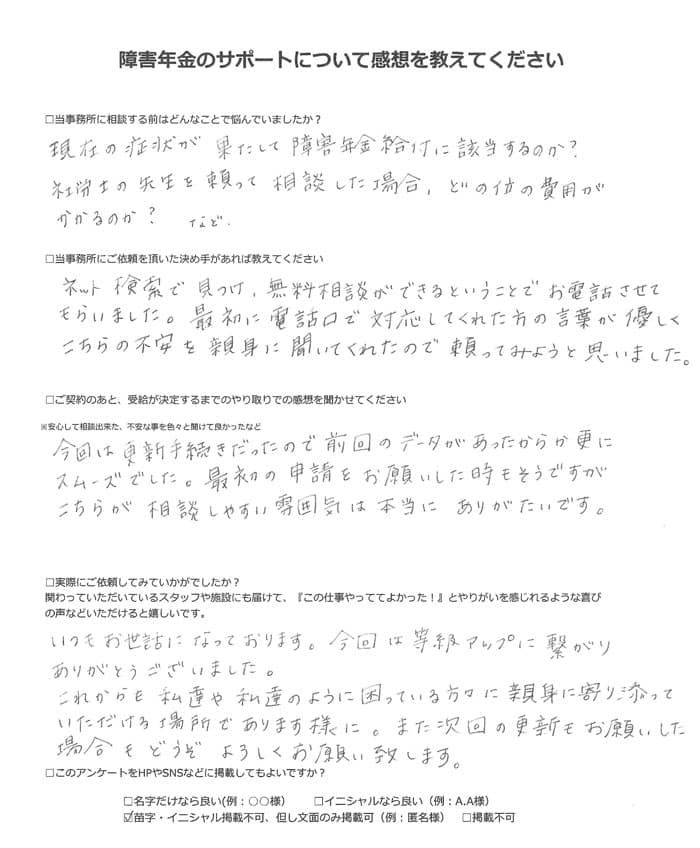 障害年金のサポートについて感想を教えてください
□当事務所に相談する前はどんなことで悩んでいましたか？
現在の症状が 果たして 障害年金給付に該当するのか？
社労士の先生を頼って 相談した場合、どの位の費用が
かかるのか？ など.
□当事務所にご依頼を頂いた決め手があれば教えてください
ネット検索で見つけ、無料相談ができるということでお電話させて
もらいました。最初に電話口で対応してくれた方の言葉が優しく
こちらの不安を親身に聞いてくれたので頼ってみようと思いました。
□ご契約のあと、受給が決定するまでのやり取りでの感想を聞かせてください
※安心して相談出来た、不安な事を色々と聞けて良かったなど
今回は更新手続きだったので前回のデータがあったからか更に
スムーズでした。最初の申請をお願いした時もそうですが
こちらが相談しやすい雰囲気は本当にありがたいです。
□実際にご依頼してみていかがでしたか？
関わっていただいているスタッフや施設にも届けて、『この仕事やっててよかった！』とやりがいを感じれるような喜び
の声などいただけると嬉しいです。
いつもお世話になっております。今回は等級アップに繋がり
ありがとうございました。
これからも私達や私達のように困っている方々に親身に寄り添って
いただける場所であります様に。また次回の更新もお願いした
場合もどうぞよろしくお願い致します。
□このアンケートをHPやSNSなどに掲載してもよいですか？
□名字だけなら良い(例：〇〇様） □イニシャルなら良い（例：A.A様）
☑苗字・イニシャル掲載不可、但し文面のみ掲載可（例：匿名様） □掲載不可